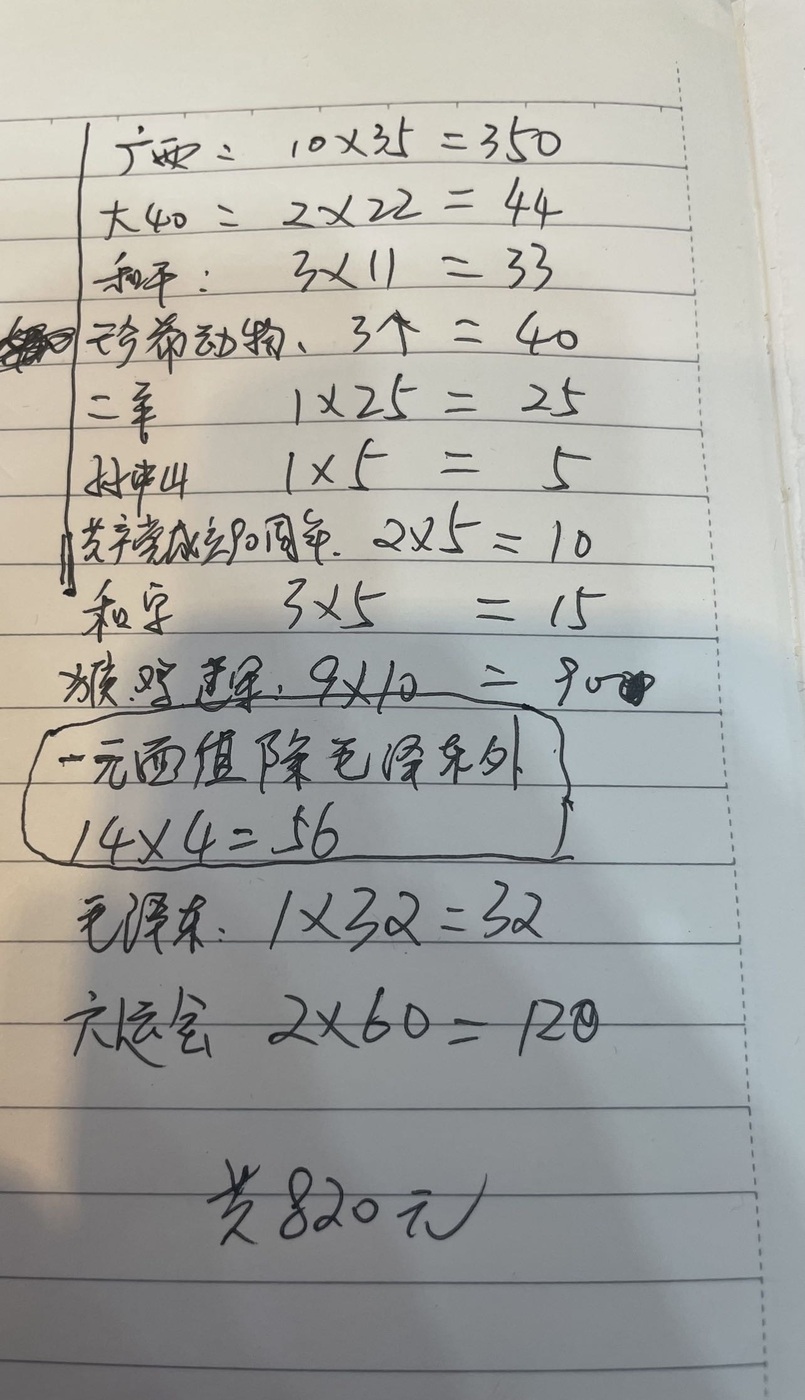 广西: 10×35=350
大40: 2×22=44
和平: 3×11=33
珍希动物、3个=40
二羊 1×25=25
孙中山 1×5=5
共产党成立90周年. 2×5=10
和字 3×5=15
猴.鸡.建军. 9×10=90
一元面值除毛泽东外
14×4=56
毛泽东: 1×32=32
六运会 2×60=120
共820元